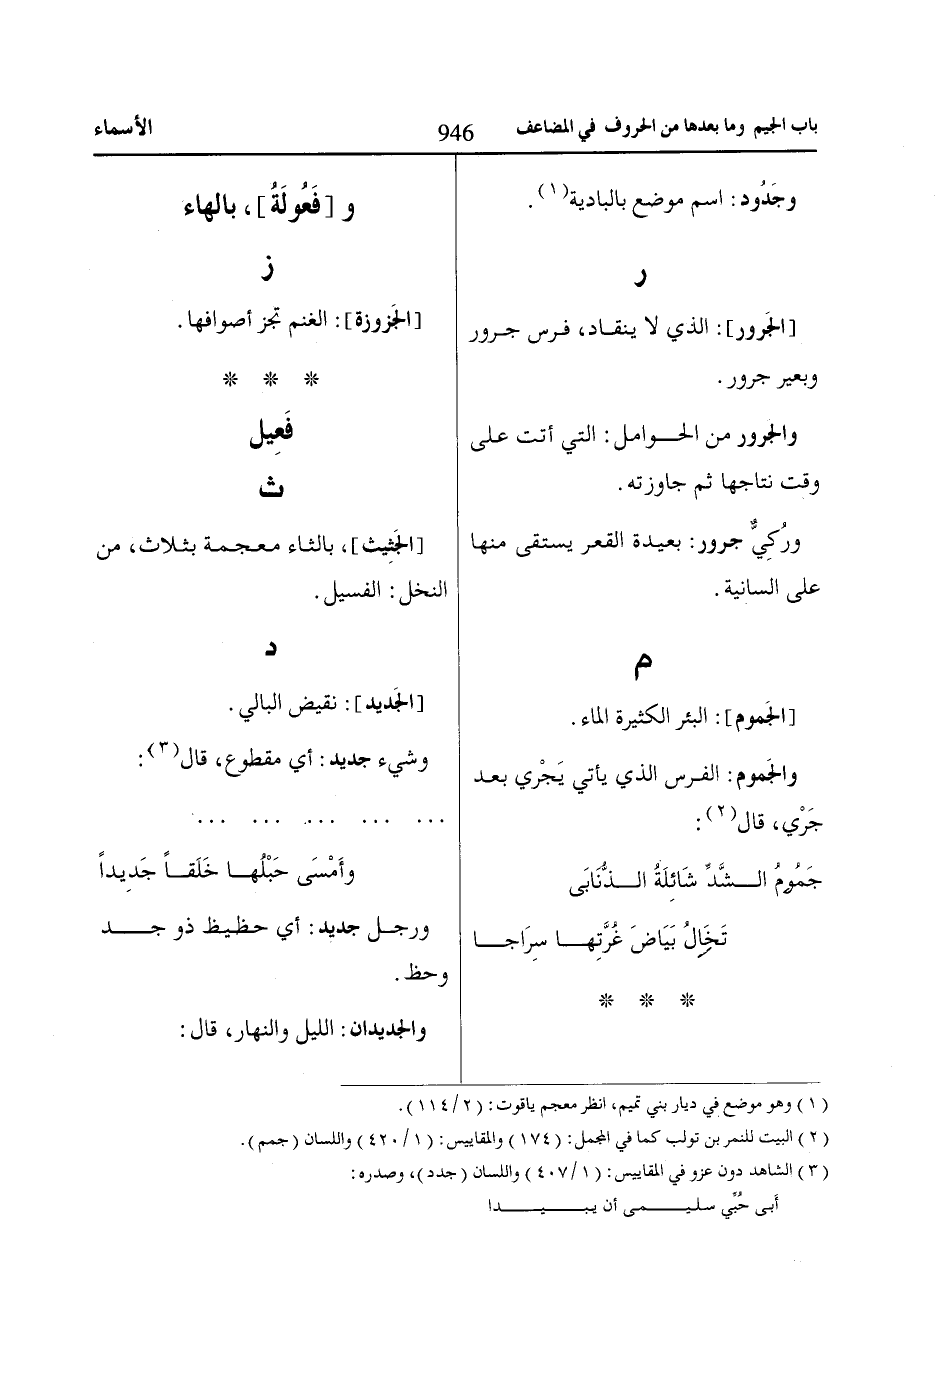 باب الجيم وما بعدها من الحروف في المضاعف 946 الأسماء
وجَدُود: اسم موضع بالبادية(١).
ر
[الجَرور]: الذي لا ينقاد، فرس جرور
وبعير جرور.
والجرور من الحوامل: التي أتت على
وقت نتاجها ثم جاوزته.
ورُكيٌّ جرور: بعيدة القعر يستقى منها
على السانية.
م
[الجَموم]: البئر الكثيرة الماء.
والجَموم: الفرس الذي يأتي يَجْري بعد
جَرْي، قال(٢):
جَمُومُ الشَّدِّ شَائلَةُ الذُّنَابَى
تَخَالُ بَيَاضَ غُرَّتِها سِرَاجا
* * *
و [فَعُولَةُ]، بالهاء
ز
[الجَزوزة]: الغنم تجز أصوافها.
* * *
فَعِيل
ث
[الجَثِيث]، بالثاء معجمة بثلاث، من
النخل: الفسيل.
د
[الجَديد]: نقيض البالي.
وشيء جديد: أي مقطوع، قال(٣):
... ... ... ... ...
وأَمْسَى حَبْلُها خَلَقاً جَدِيداً
ورجل جديد: أي حظيظ ذو جد
وحظ.
والجديدان: الليل والنهار، قال:
(١) وهو موضع في ديار بني تميم، انظر معجم ياقوت: (٢/ ١١٤).
(٢) البيت للنمر بن تولب كما في المجمل: (١٧٤) والمقاييس: (١/ ٤٢٠) واللسان (جمم).
(٣) الشاهد دون عزو في المقاييس: (١/ ٤٠٧) واللسان (جدد)، وصدره:
أَبى حُبِّي سليمى أن يبيدا